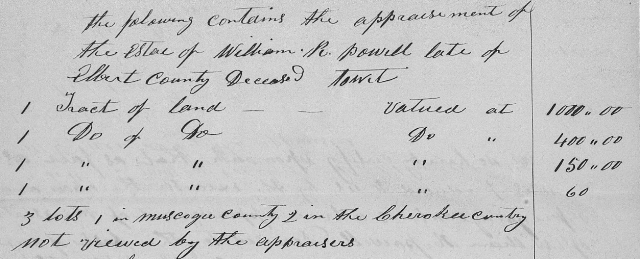 the folowing contains the appraisement of
the Estae of William. R. Powell late of
Elbert County Deceased towit
1 Tract of land — — valued at 1000,,00
1 Do of Do Do " 400,,00
1 " " " 150,,00
1 " " " 60
3 lots 1 in muscogee county 2 in the Cherokee country
not viewed by the appraisers